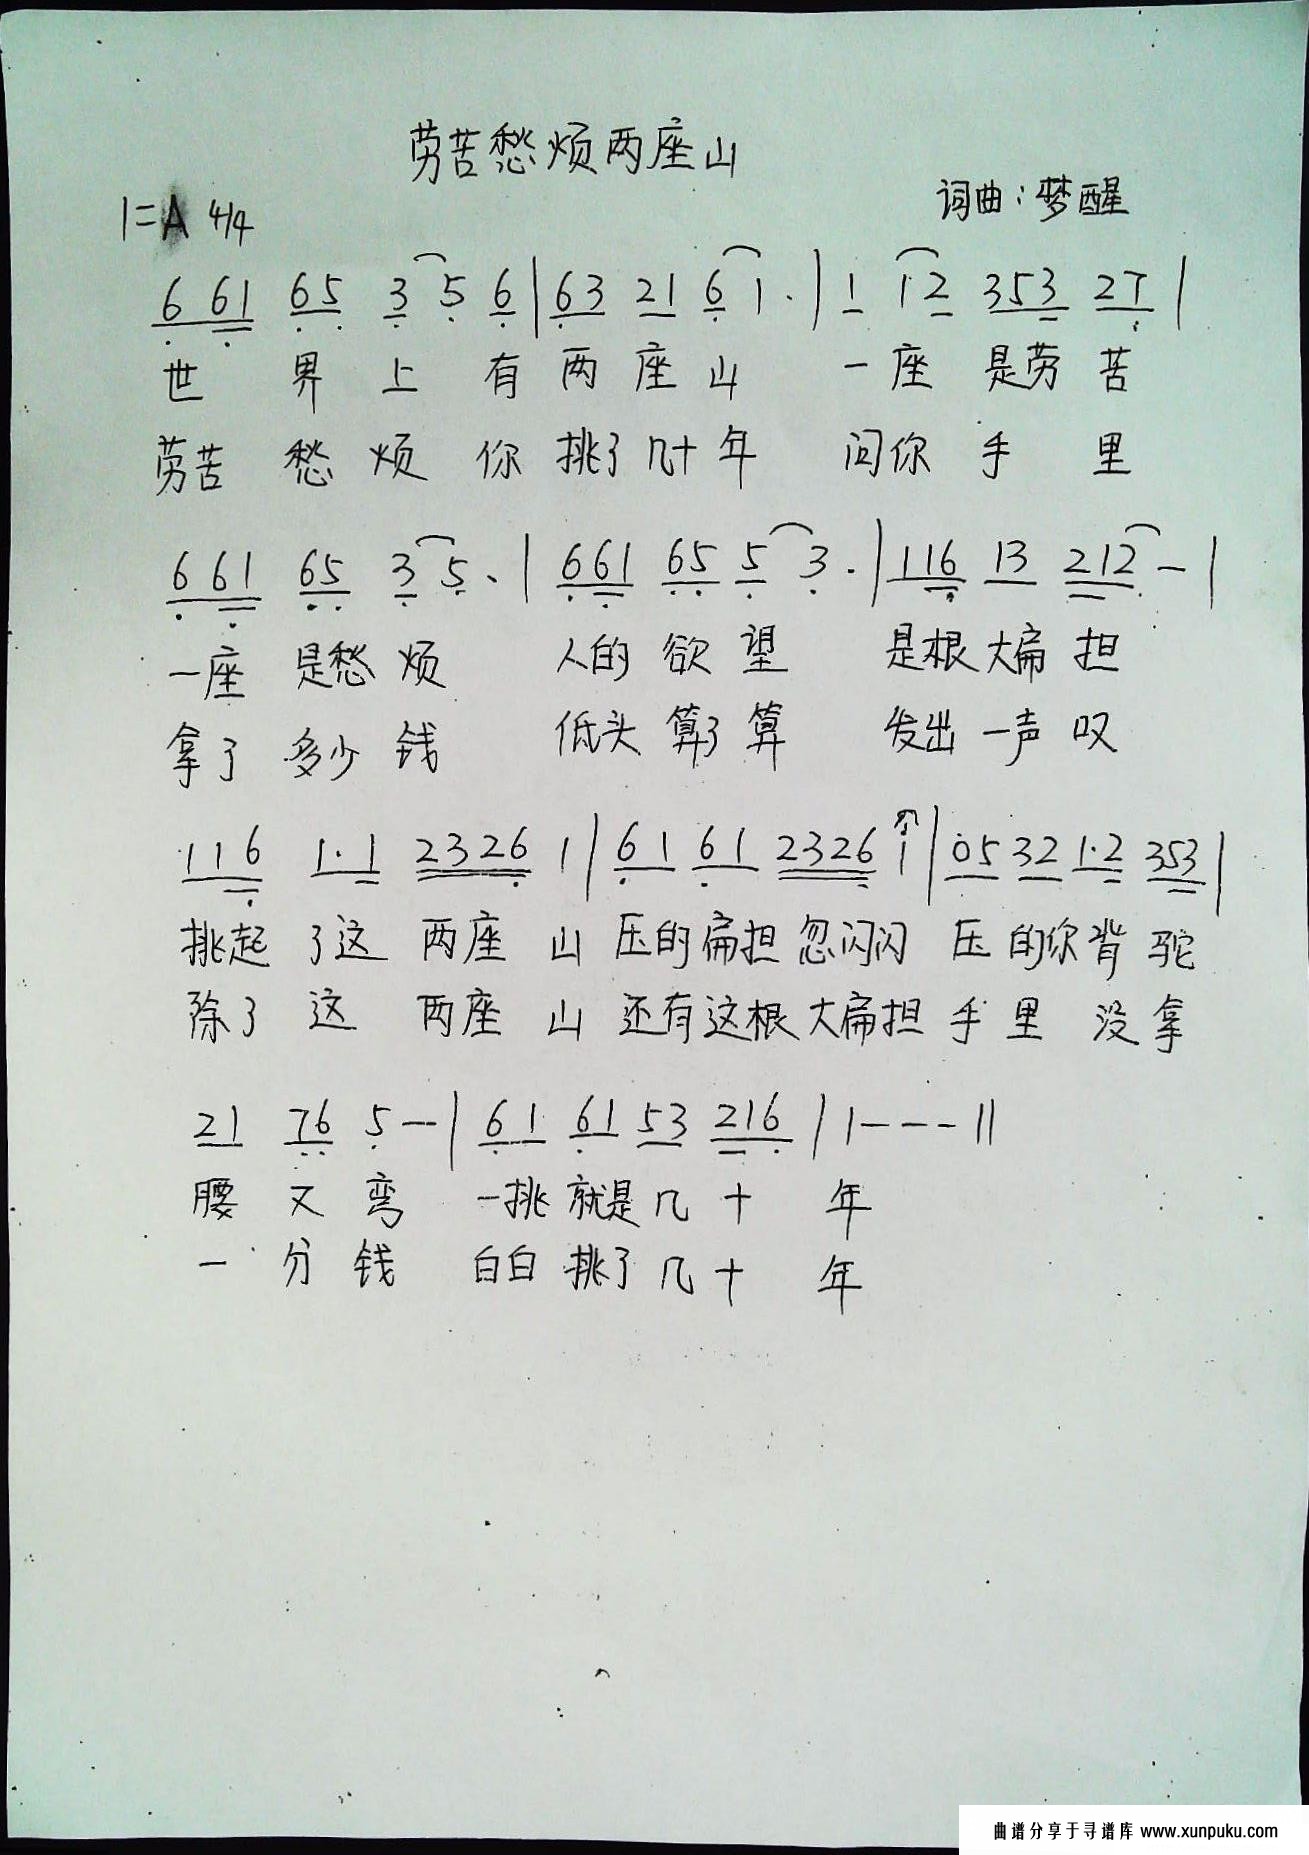 劳苦愁烦两座山
词曲：梦醒
1=A 4/4
6 61 65 3 5 6 | 63 21 6 1 · | 1 12 353 27 |
世 界 上 有 两 座 山 一座 是劳 苦
劳苦 愁 烦 你 挑了几十年 问你 手 里
6 61 65 3 5 · | 661 65 5 3 · | 116 13 212 - |
一座 是愁 烦 人的 欲 望 是根大扁 担
拿了 多少 钱 低头 算了 算 发出 一声 叹
116 1·1 2326 1 | 61 61 2326 1 | 05 32 1·2 353 |
挑起 了这 两座 山 压的扁担忽闪闪 压 的你背 驼
除了 这 两座 山 还有这根大扁担 手 里 没 拿
21 76 5 - - | 61 61 53 216 | 1 - - - ||
腰 又 弯 一挑 就是 几 十 年
一 分 钱 白白 挑了 几 十 年
曲谱分享于寻谱库 www.xunpuku.com